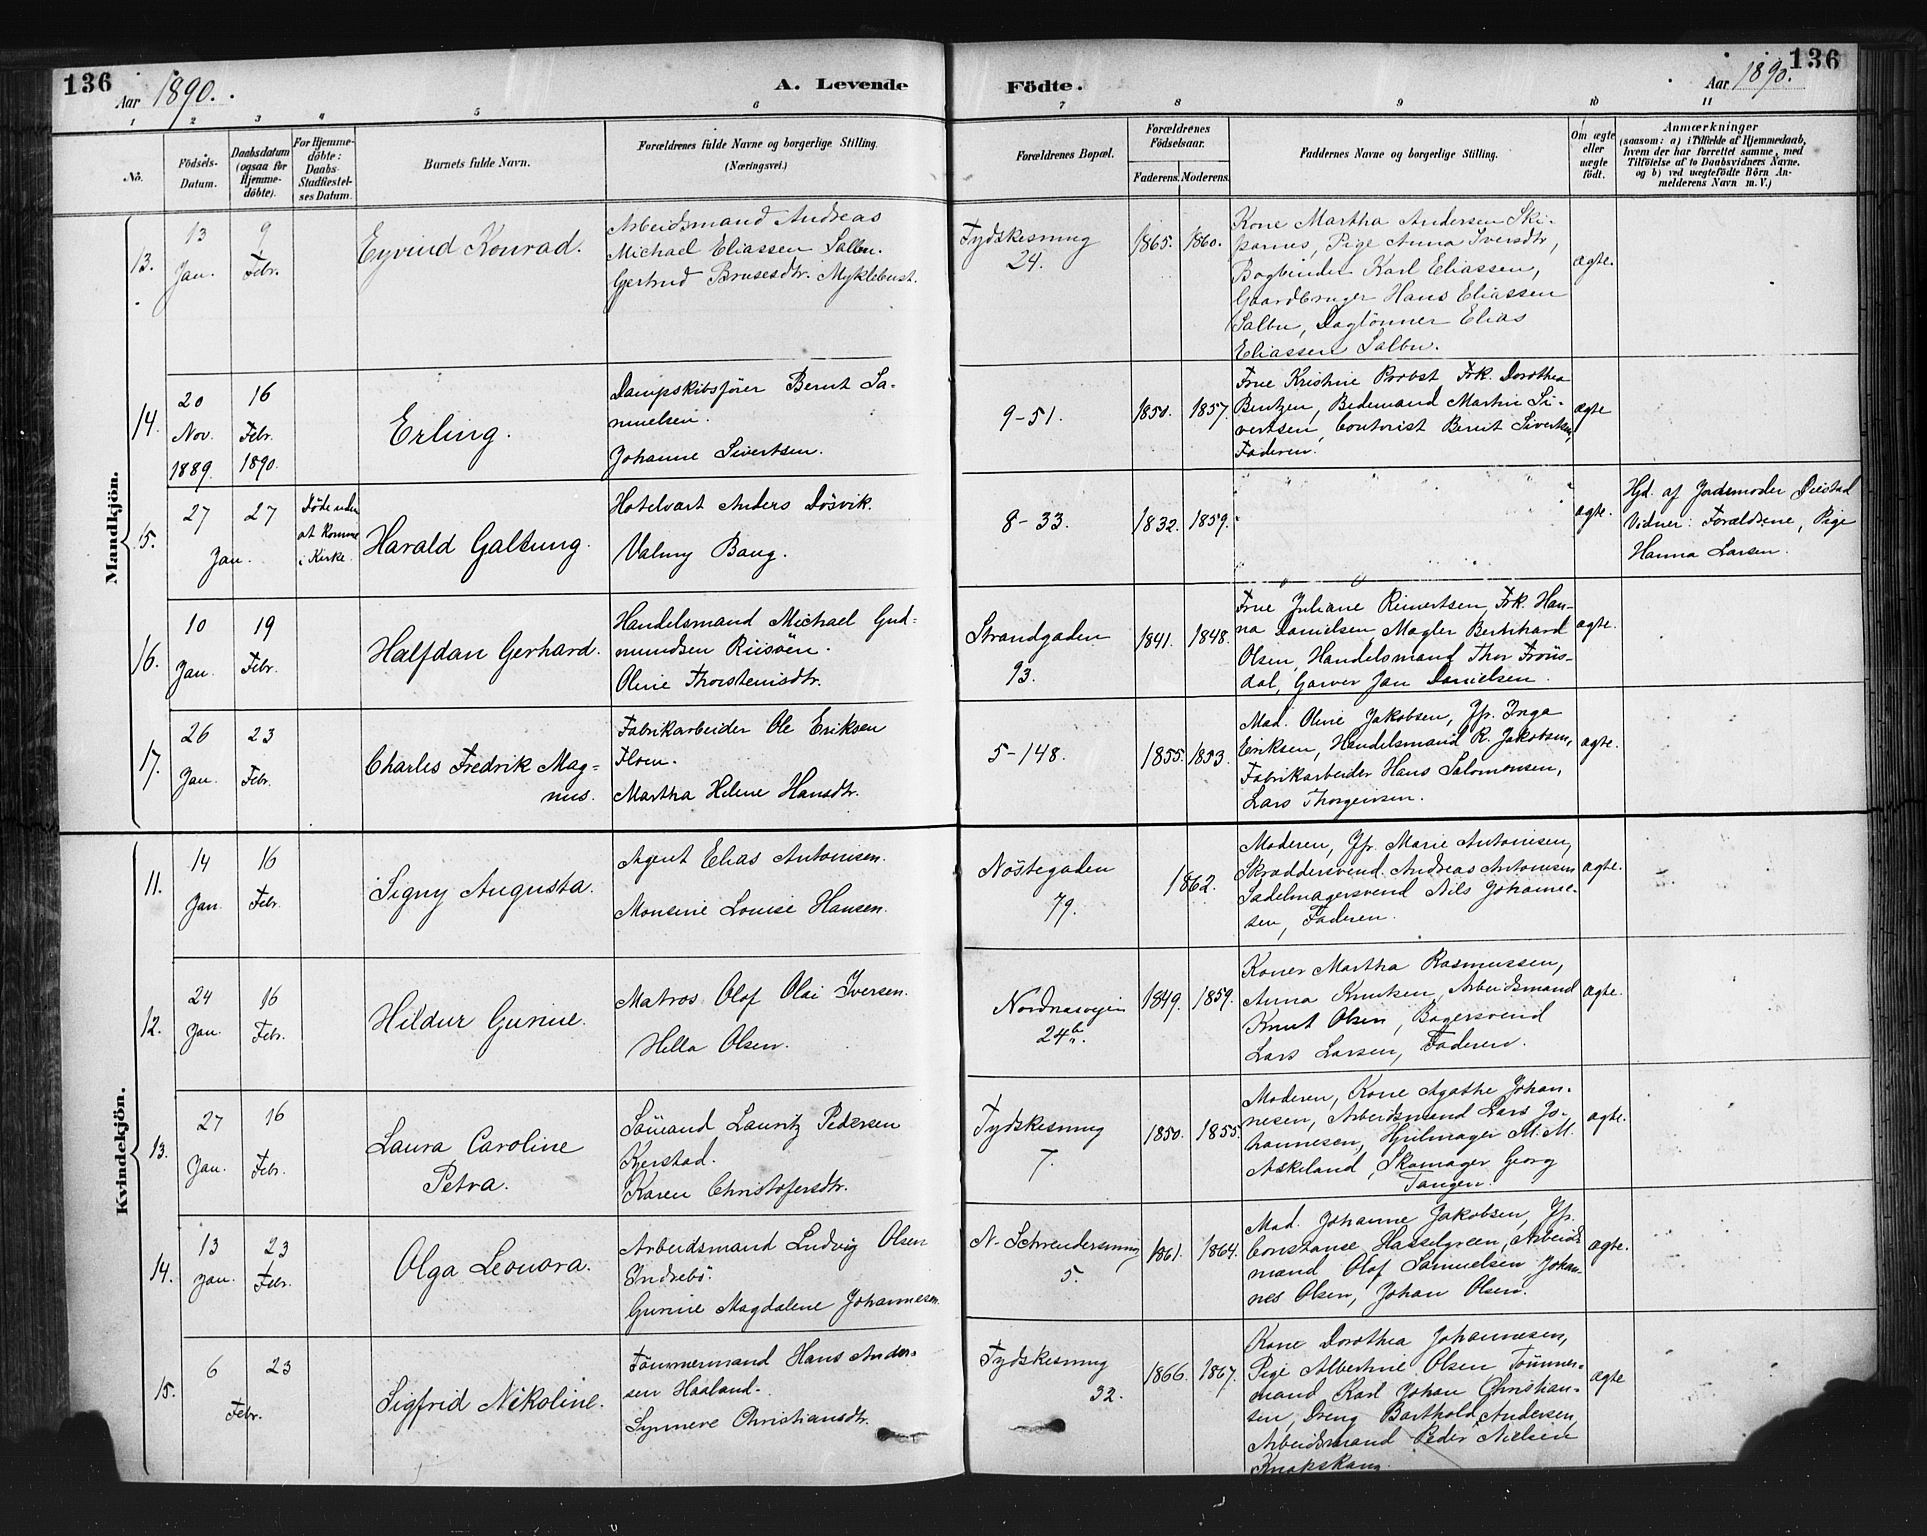 136
Aar 1890.
A. Levende
Födte.
Aar 1890.
136
1 2 3 4 5 6 7 8 9 10 11
No.
Födsels-
Datum.
Daabsdatum
(ogsaa for
Hjemme-
döbte).
For Hjemme-
döbte:
Daabs-
Stadfæstel-
ses Datum.
Barnets fulde Navn.
Forældrenes fulde Navne og borgerlige Stilling.
(Næringsvei.)
Forældrenes Bopæl.
Forældrenes
Födselsaar.
Faderens. Moderens.
Faddernes Navne og borgerlige Stilling.
Om ægte
eller
uægte
født.
Anmærkninger
(saasom: a) i Tilfælde af Hjemmedaab,
hvem der har forrettet samme, med
Tilföielse af to Daabsvidners Navne,
og b) ved uægtefödte Börn An-
melderens Navn m. V.)
Mandkjön.
13.
13
Jan.
9
Febr.
Eyvind Konrad.
Arbeidsmand Andreas
Michael Eliassen Salbu.
Gjertrud Brusesdtr. Myklebust.
Tydskesmug
24.
1865. 1860.
Kone Martha Andersen Ski-
parnes, Pige Anna Iversdtr,
Bogbinder Karl Eliassen,
Gaardbruger Hans Eliassen
Salbu, Daglönner Elias
Eliassen Salbu.
ægte.
14.
20
Nov.
1889.
16
Febr.
1890.
Erling.
Dampskibsfører Bernt Sa-
muelsen.
Johanne Sivertsen.
9-51.
1850. 1857.
Frue Kristine Probst Frk. Dorothea
Bentzen, Bedemand Martin Si-
vertsen, Contorist Bernt Sivertsen,
Faderen.
ægte
5.
27
27
Jan.
at Komme
i Kirke.
Harald Galtung.
Hotelvært Anders Dösvik.
Valmy Bang.
8-33.
1832. 1859.
ægte.
Hjd. af Jordemoder
Vidner: Forældrene, Pige
Hanna Larsen.
16.
10
Jan.
19
Febr.
Halfdan Gerhard.
Handelsmand Michael Gud-
mundsen Riisöen.
Oline Thorstensdtr.
Strandgaden
93.
1841. 1848.
Frue Juliane Reinertsen, Frk. Han-
na Danielsen, Mægler Bernhard
Olsen, Handelsmand Thor Fröis-
dal, Garver Jan Danielsen.
ægte.
17.
26
Jan.
23
Febr.
Charles Fredrik Mag-
nus.
Fabrikarbeider Ole Eriksen
Floen.
Martha Helene Hansdtr.
5-148.
1855. 1853.
Mad. Oline Jakobsen, Jfr. Inga
Eriksen, Handelsmand R. Jakobsen,
Fabrikarbeider Hans Salomonsen,
Lars Thorgeirsen.
ægte.
Kvindekjön.
11.
14
Jan.
16
Febr.
Signy Augusta.
Agent Elias Antonisen.
Monsine Louise Hansen.
Nöstegaden
79.
1862.
Moderen, Jfr. Marie Antonisen,
Skræddersvend Andreas Antonisen
Sadelmagersvend Nils Johanne-
sen, Faderen.
ægte.
12.
24
Jan.
16
Febr.
Hildur Gurine.
Matros Olof Olai Iversen.
Hella Olsen.
Nordnæsveien
24b.
1849. 1859.
Koner Martha Rasmussen,
Anna Knutsen, Arbeidsmand
Knut Olsen, Bagersvend
Lars Larsen, Faderen.
ægte.
13.
27
Jan.
16
Febr.
Laura Caroline
Petra.
Sömand Lauritz Pedersen
Kjerstad.
Karen Christofersdtr.
Tydskesmug
7.
1850. 1855.
Moderen, Kone Agathe Johan-
nesen, Arbeidsmand Lars Jo-
hannesen, Hjulmager M. M.
Askeland, Skomager Georg
Tangen.
ægte.
14.
13
Jan.
23
Febr.
Olga Leonora.
Arbeidsmand Ludvig Olsen
Indrebö.
Gurine Magdalene Johannesen.
N. Schreudersmug
5.
1861. 1864.
Mad. Johanne Jakobsen, Jfr.
Constanse Hasselgreen, Arbeids-
mand Olof Samuelsen, Johan-
nes Olsen, Johan Olsen.
ægte.
15.
6
23
Febr.
Sigfrid Nikoline.
Tömmermand Hans Ander-
sen Haaland.
Synneve Christiansdtr.
Tydskesmug
32.
1866. 1867.
Kone Dorothea Johannesen,
Pige Albertine Olsen Tömmer-
mand Karl Johan Christian-
sen, Dreng Barthold Andersen,
Arbeidsmand Peder Nielsen
Knapskaug.
ægte